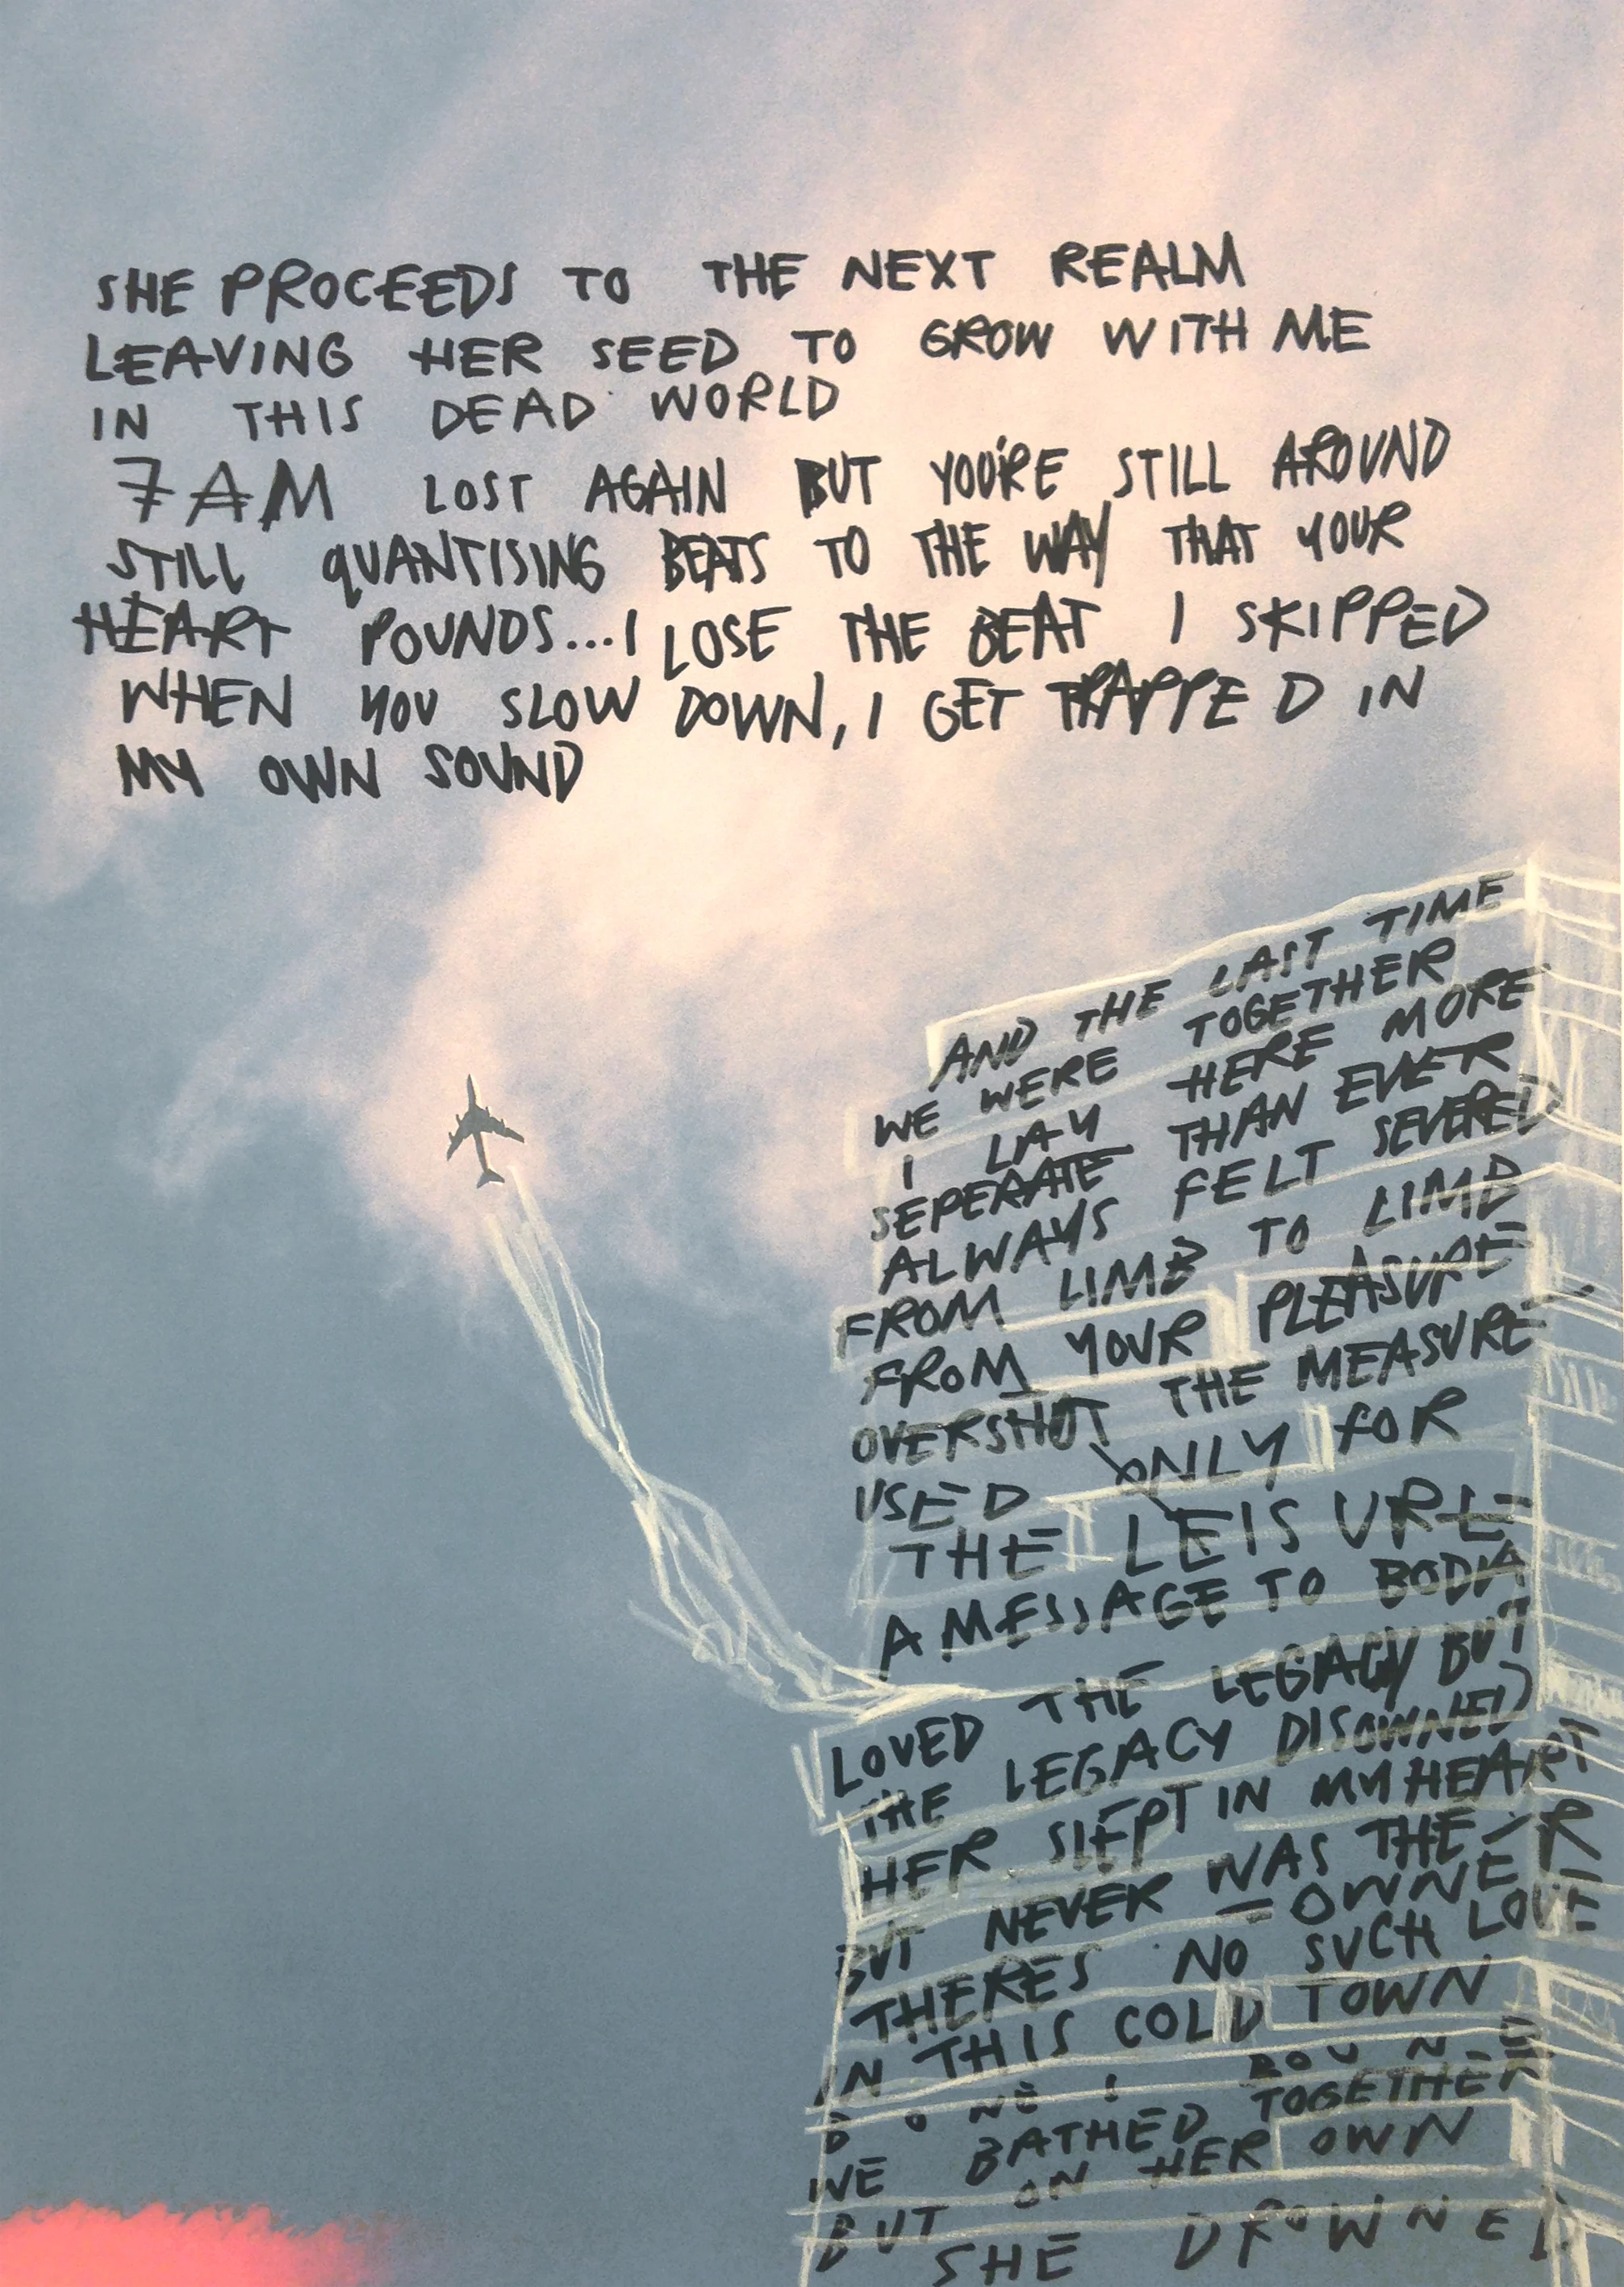 SHE PROCEEDS TO THE NEXT REALM
LEAVING HER SEED TO GROW WITH ME
IN THIS DEAD WORLD
7AM LOST AGAIN BUT YOU'RE STILL AROUND
STILL QUANTISING BEATS TO THE WAY THAT YOUR
HEART POUNDS...I LOSE THE BEAT I SKIPPED
WHEN YOU SLOW DOWN, I GET TRAPPED IN
MY OWN SOUND
AND THE LAST TIME
WE WERE TOGETHER
I LAY HERE MORE
SEPERATE THAN EVER
ALWAYS FELT SEVERED
FROM LIMB TO LIMB
FROM YOUR PLEASURE
OVERSHOT THE MEASURE
USED ONLY FOR
THE LEISURE
A MESSAGE TO BODIA
LOVED THE LEGACY BUT
THE LEGACY DISOWNED
HER SLEPT IN MY HEART
BUT NEVER WAS THEIR
OWNER
THERES NO SUCH LOVE
IN THIS COLD TOWN
WE BATHED TOGETHER
BUT ON HER OWN
SHE DROWNED